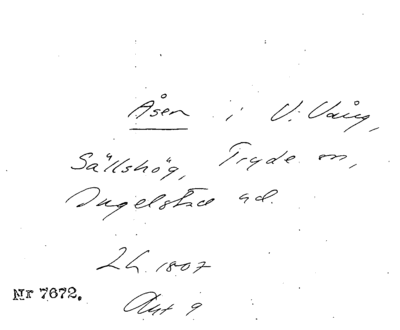 Åsen i V. Vång,
Sällshög, Tryde sn,
Ingelstad hd.
Lh. 1807
Akt 9
Nr 7672.